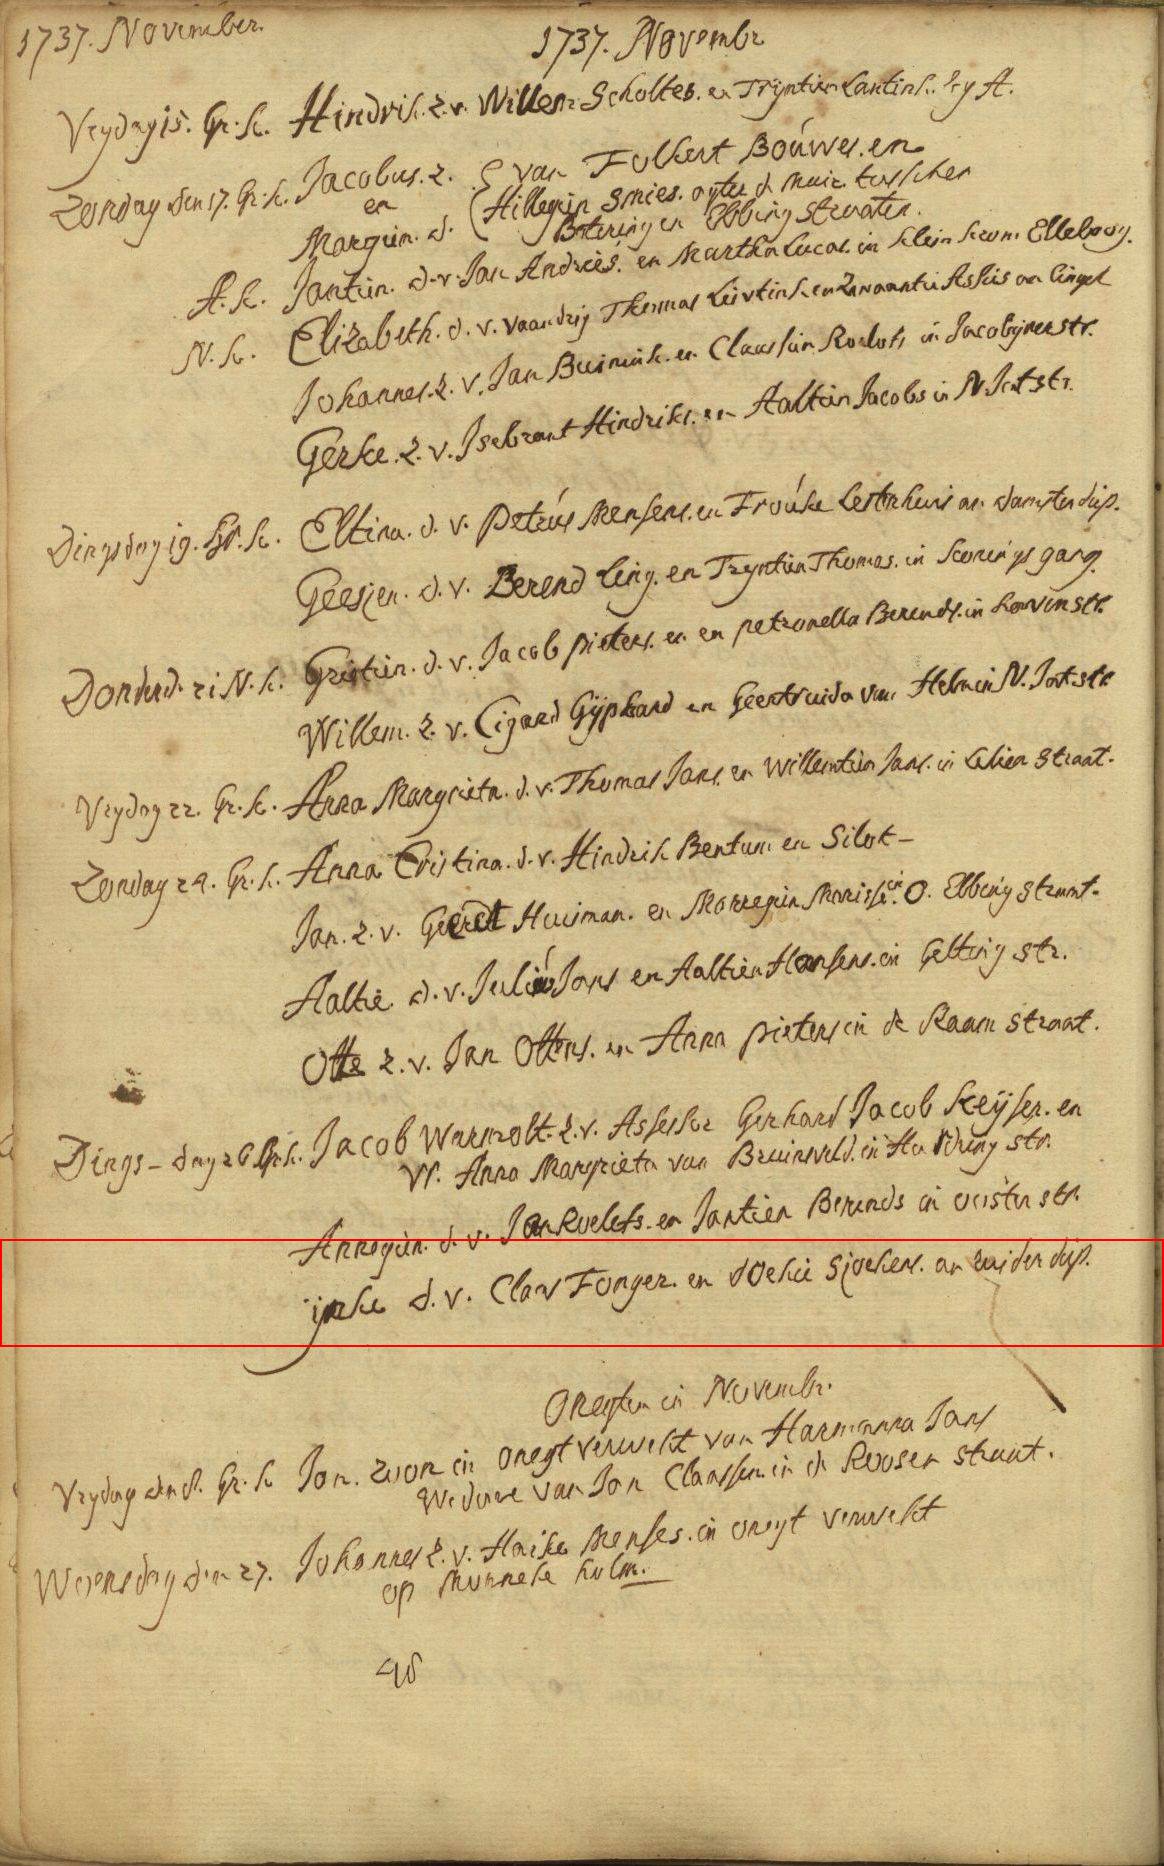 1737. November.
1737. Novembr
Vrydag 15. Gr. k. Hindrik. z. v. Willem Scholtes. en Tryntien Lantink. by A.
Zondag den 17. Gr. k. Jacobus. z. van Folkert Bouwes. en
en Hillegien Smies. agter de muir tusschen
Margien. d. Botering en Ebbing straaten.
A. k. Jantien. d. v. Jan Andries. en Martha Lucas. in klein krom Elleboog.
N. k. Elizabeth. d. v. vaandrig Thomas en aan Cingel
Johannes. z. v. Jan Buirink. en Claassien Roelofs in Jacobynerstr.
Gerke. z. v. Isebrant Hindriks. en Aaltien Jacobs in N. Jatstr.
Dingsdag 19. Gr. k. Eltina. d. v. Petrús Mensens. en Froúke Lesterhuis an damsterdiip.
Geesjen. d. v. Berend Ling. en Tryntien Thomas. in konings gang.
Donderd. 21 N. k. Gristien. d. v. Jacob pieters. en en petronella Berends. in
Willem. z. v. Gijphard en Geertruida van Helm in N. Jatstr.
Vrydag 22. Gr. k. Anna Margrieta. d. v. Thomas Jans. en Willemtien Jans. in Lelien straat.
Zondag 24. Gr. k. Anna Cristina. d. v. Hindrik Bentum en Silot-
Jan. z. v. Geerdt Huisman. en Morregien in O. Ebbing straat.
Aaltie d. v. Juliús Jans en Aaltien Hansens. in Gelting str.
Otte z. v. Jan Ottens. en Anna pieters in de Raam straat.
Dings-dag 26 Gr. k. Jacob Warmolt. z. v. Assessor Gerhard Jacob Keijser. en
W. Anna Margrieta van Bruinsveld. in Hardring str.
Annegien. d. v. Jan Roelefs. en Jantien Berends in oosterstr.
ijnke d. v. Claas Fonger. en doetie Sjoekens. an zuiderdiip.
Onegten in Novembr.
Vrydag den 8. Gr. k Jan. zoon in onegt verwekt van Harmanna Jans
Weduwe van Jan Claassen. in de Roosen straat.
Woensdag den 27. Johannes z. v. Haike Menses. in onegt verwekt
op Munneke holm.
48